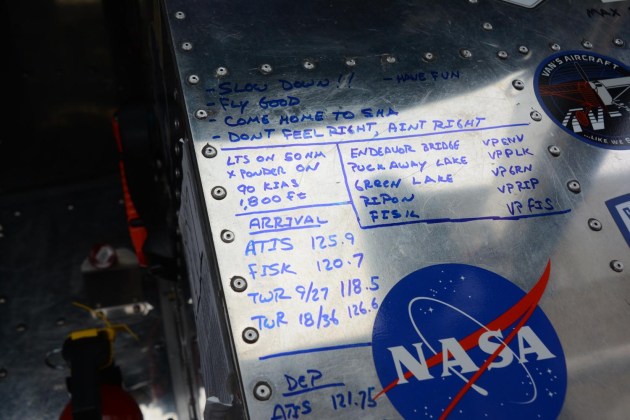 MAX
VAN'S AIRCRAFT
- SLOW DOWN!! - HAVE FUN
- FLY GOOD
- COME HOME TO SHA
- DON'T FEEL RIGHT, AINT RIGHT
LTS ON 50NM
X PONDER ON
90 KIAS
1,800 Ft
ENDEAVOR BRIDGE VPENV
PUCKAWAY LAKE VPPLK
GREEN LAKE VPGRN
RIPON VPRIP
FISK VPFIS
ARRIVAL
ATIS 125.9
FISK 120.7
TWR 9/27 118.5
TWR 18/36 126.6
NASA
DEP
ATIS 121.75